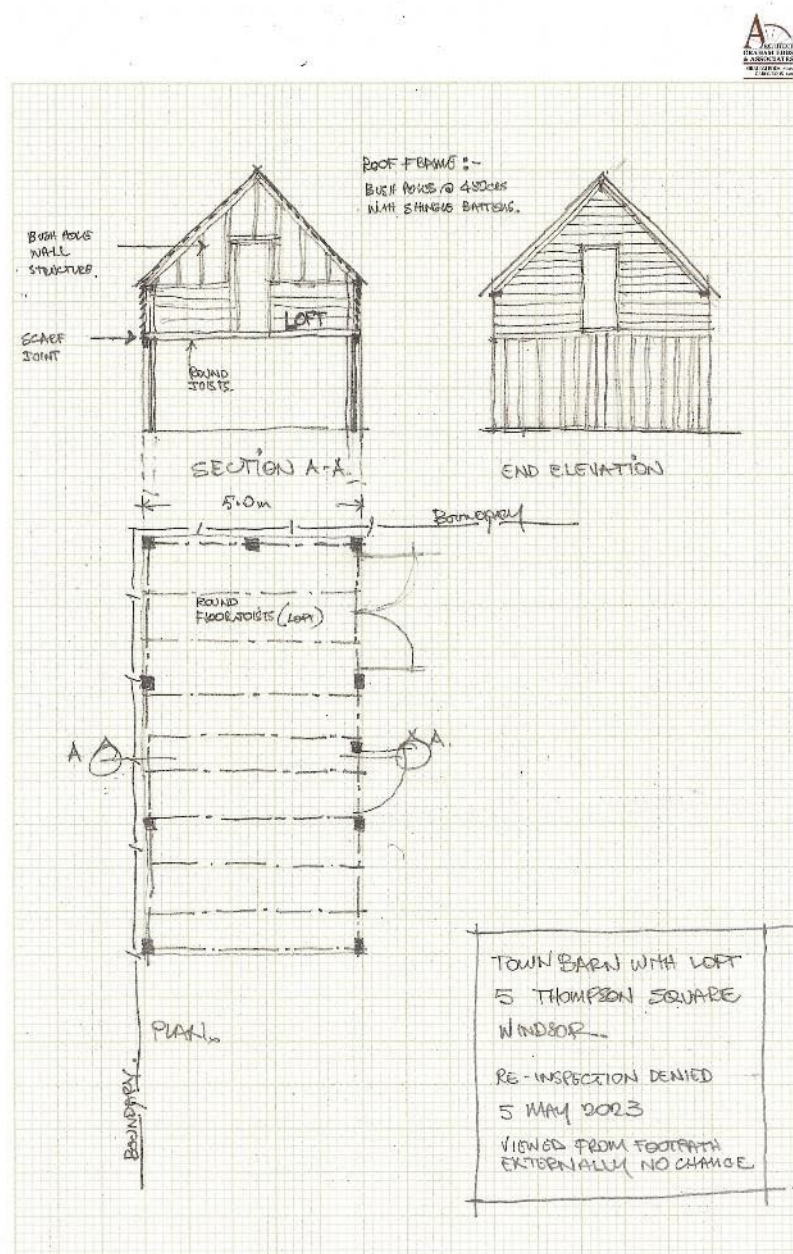 ARCHITECT
GRAHAM EDDS
& ASSOCIATES
ROOF FRAME :-
BUSH POLES @ 450crs
WITH SHINGLE BATTENS.
BUSH POLE
WALL
STRUCTURE.
LOFT
SCARF
JOINT
ROUND
JOISTS.
SECTION A-A.
END ELEVATION
5.0m
BOUNDARY
ROUND
FLOOR JOISTS (LOFT)
A
A.
PLAN.
BOUNDARY.
TOWN BARN WITH LOFT
5 THOMPSON SQUARE
WINDSOR.
RE-INSPECTION DENIED
5 MAY 2023
VIEWED FROM FOOTPATH
EXTERNALLY NO CHANGE